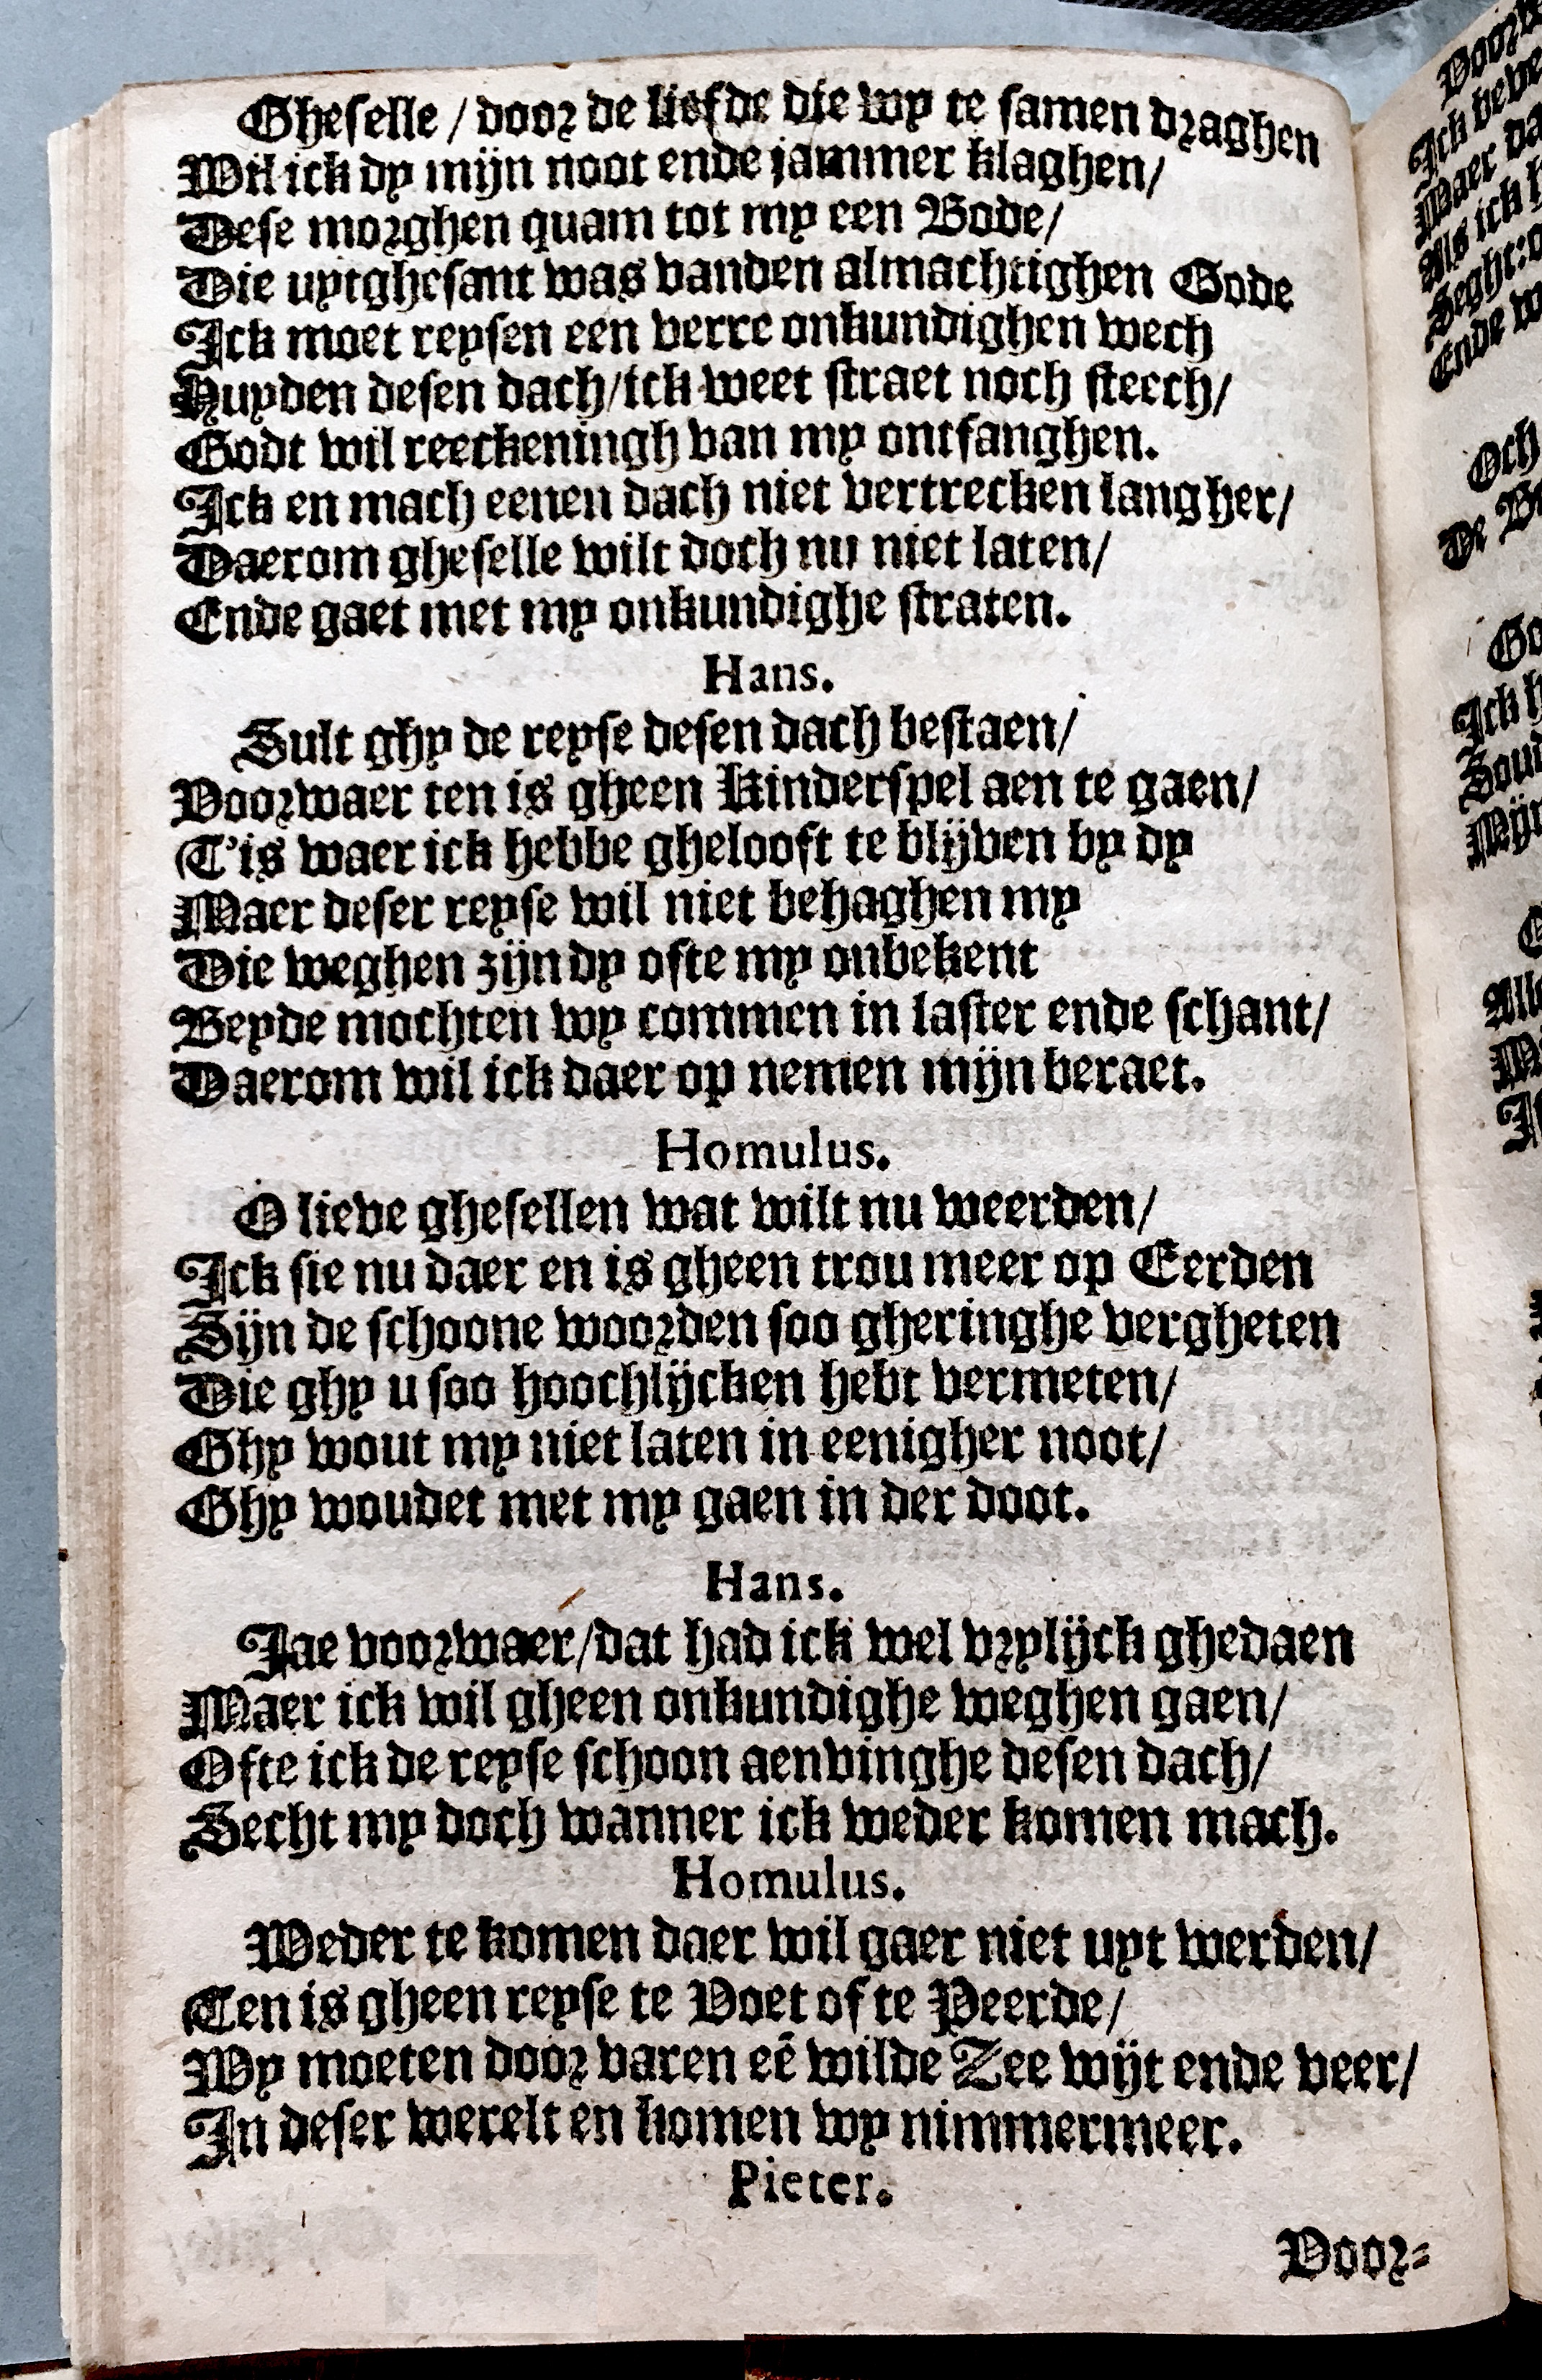 Gheselle / door de liefde die wy te samen draghen
Wil ick dy mijn noot ende jammer klaghen/
Dese morghen quam tot my een Bode/
Die uytghesant was vanden almachtighen Gode
Ick moet reysen een verre onkundighen wech
Huyden desen dach/ick weet straet noch steech/
Godt wil reeckeningh van my ontfanghen.
Ick en mach eenen dach niet vertrecken langher/
Daerom gheselle wilt doch nu niet laten/
Ende gaet met my onkundighe straten.
Hans.
Sult ghy de reyse desen dach bestaen/
Voorwaer ten is gheen Kinderspel aen te gaen/
T'is waer ick hebbe ghelooft te blijven by dy
Maer deser reyse wil niet behaghen my
Die weghen zijn dy ofte my onbekent
Beyde mochten wy commen in laster ende schant/
Daerom wil ick daer op nemen mijn beraet.
Homulus.
O lieve ghesellen wat wilt nu weerden/
Ick sie nu daer en is gheen trou meer op Eerden
Zijn de schoone woorden soo gheringhe vergheten
Die ghy u soo hoochlijcken hebt vermeten/
Ghy wout my niet laten in eenigher noot/
Ghy woudet met my gaen in der doot.
Hans.
Jae voorwaer/dat had ick wel vrylijck ghedaen
Maer ick wil gheen onkundighe weghen gaen/
Ofte ick de reyse schoon aenvinghe desen dach/
Secht my doch wanner ick weder komen mach.
Homulus.
Weder te komen daer wil gaer niet uyt werden/
Ten is gheen reyse te Voet ofte Peerde/
Wy moeten door varen eẽ wilde Zee wijt ende veer/
In deser werelt en komen wy nimmermeer.
Pieter.
Voor-
Ick
Maer
Als ick
Seght:
Ende
Och
De
Ick